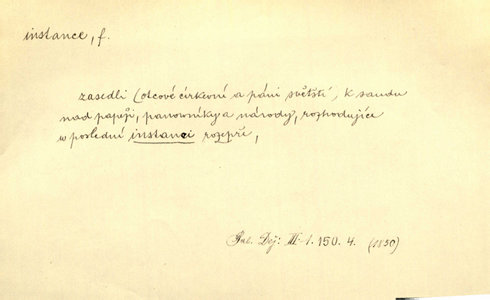 instance, f.
zasedli (otcové církevní a páni světští) k saudu
nad papeži, panovníky a národy, rozhodujíce
w poslední instanci rozepře,
Pal. Děj. III-1. 150. 4. (1850)